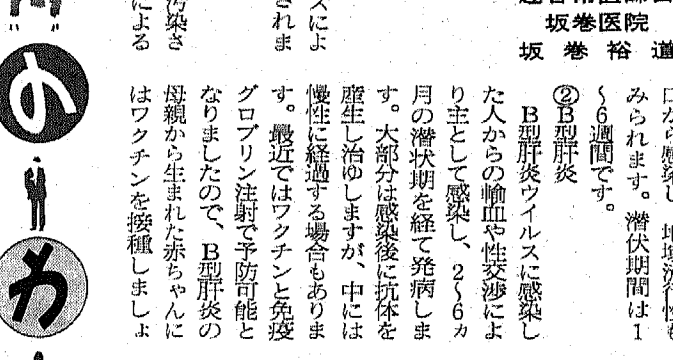 坂巻医院
坂巻裕
口から感染し、地域流行性も
みられます。潜伏期間は1
〜6週間です。
②B型肝炎
B型肝炎ウイルスに感染し
た人からの輸血や性交渉によ
り主として感染し、2〜6ヵ
月の潜状期を経て発病しま
す。大部分は感染後に抗体を
産生し治ゆしますが、中には
慢性に経過する場合もありま
す。最近ではワクチンと免疫
グロブリン注射で予防可能と
なりましたので、B型肝炎の
母親から生まれた赤ちゃんに
はワクチンを接種しましょ
スによ
されま
汚染さ
による
の
か